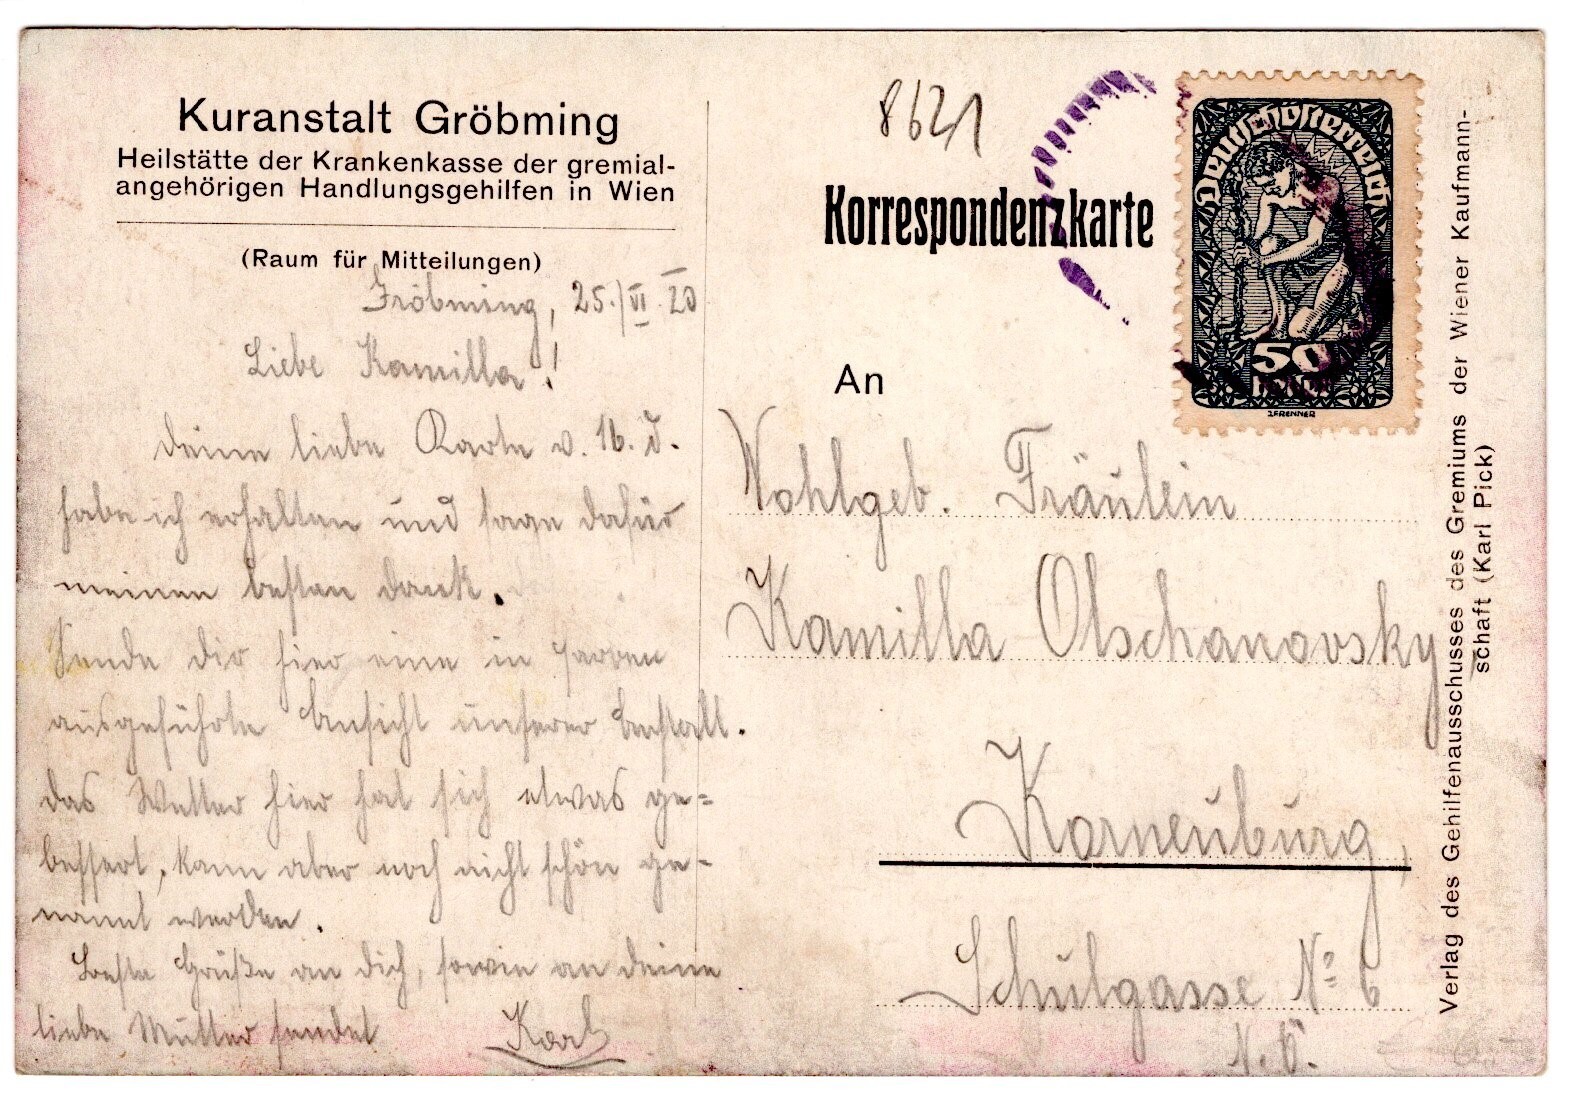 Kuranstalt Gröbming
Heilstätte der Krankenkasse der gremial-
angehörigen Handlungsgehilfen in Wien
(Raum für Mitteilungen)
Gröbming, 25./VI. 20
Liebe Kamilla!
Deine liebe Karte v. 16. d.
habe ich erhalten und sage dafür
meinen besten Dank.
Sende dir hier eine in Farben
ausgeführte Ansicht unserer Anstalt.
Das Wetter hier hat sich etwas ge=
bessert, kann aber noch nicht schön ge-
nannt werden.
Beste Grüße an Dich, sowie an Deine
liebe Mutter sendet Karl
8621
Korrespondenzkarte
Deutschösterreich
50
J.F.RENNER
An
Wohlgeb. Fräulein
Kamilla Olschanovsky
Korneuburg,
Schulgasse No 6
N.Ö.
Verlag des Gehilfenausschusses des Gremiums der Wiener Kaufmann-
schaft (Karl Pick)